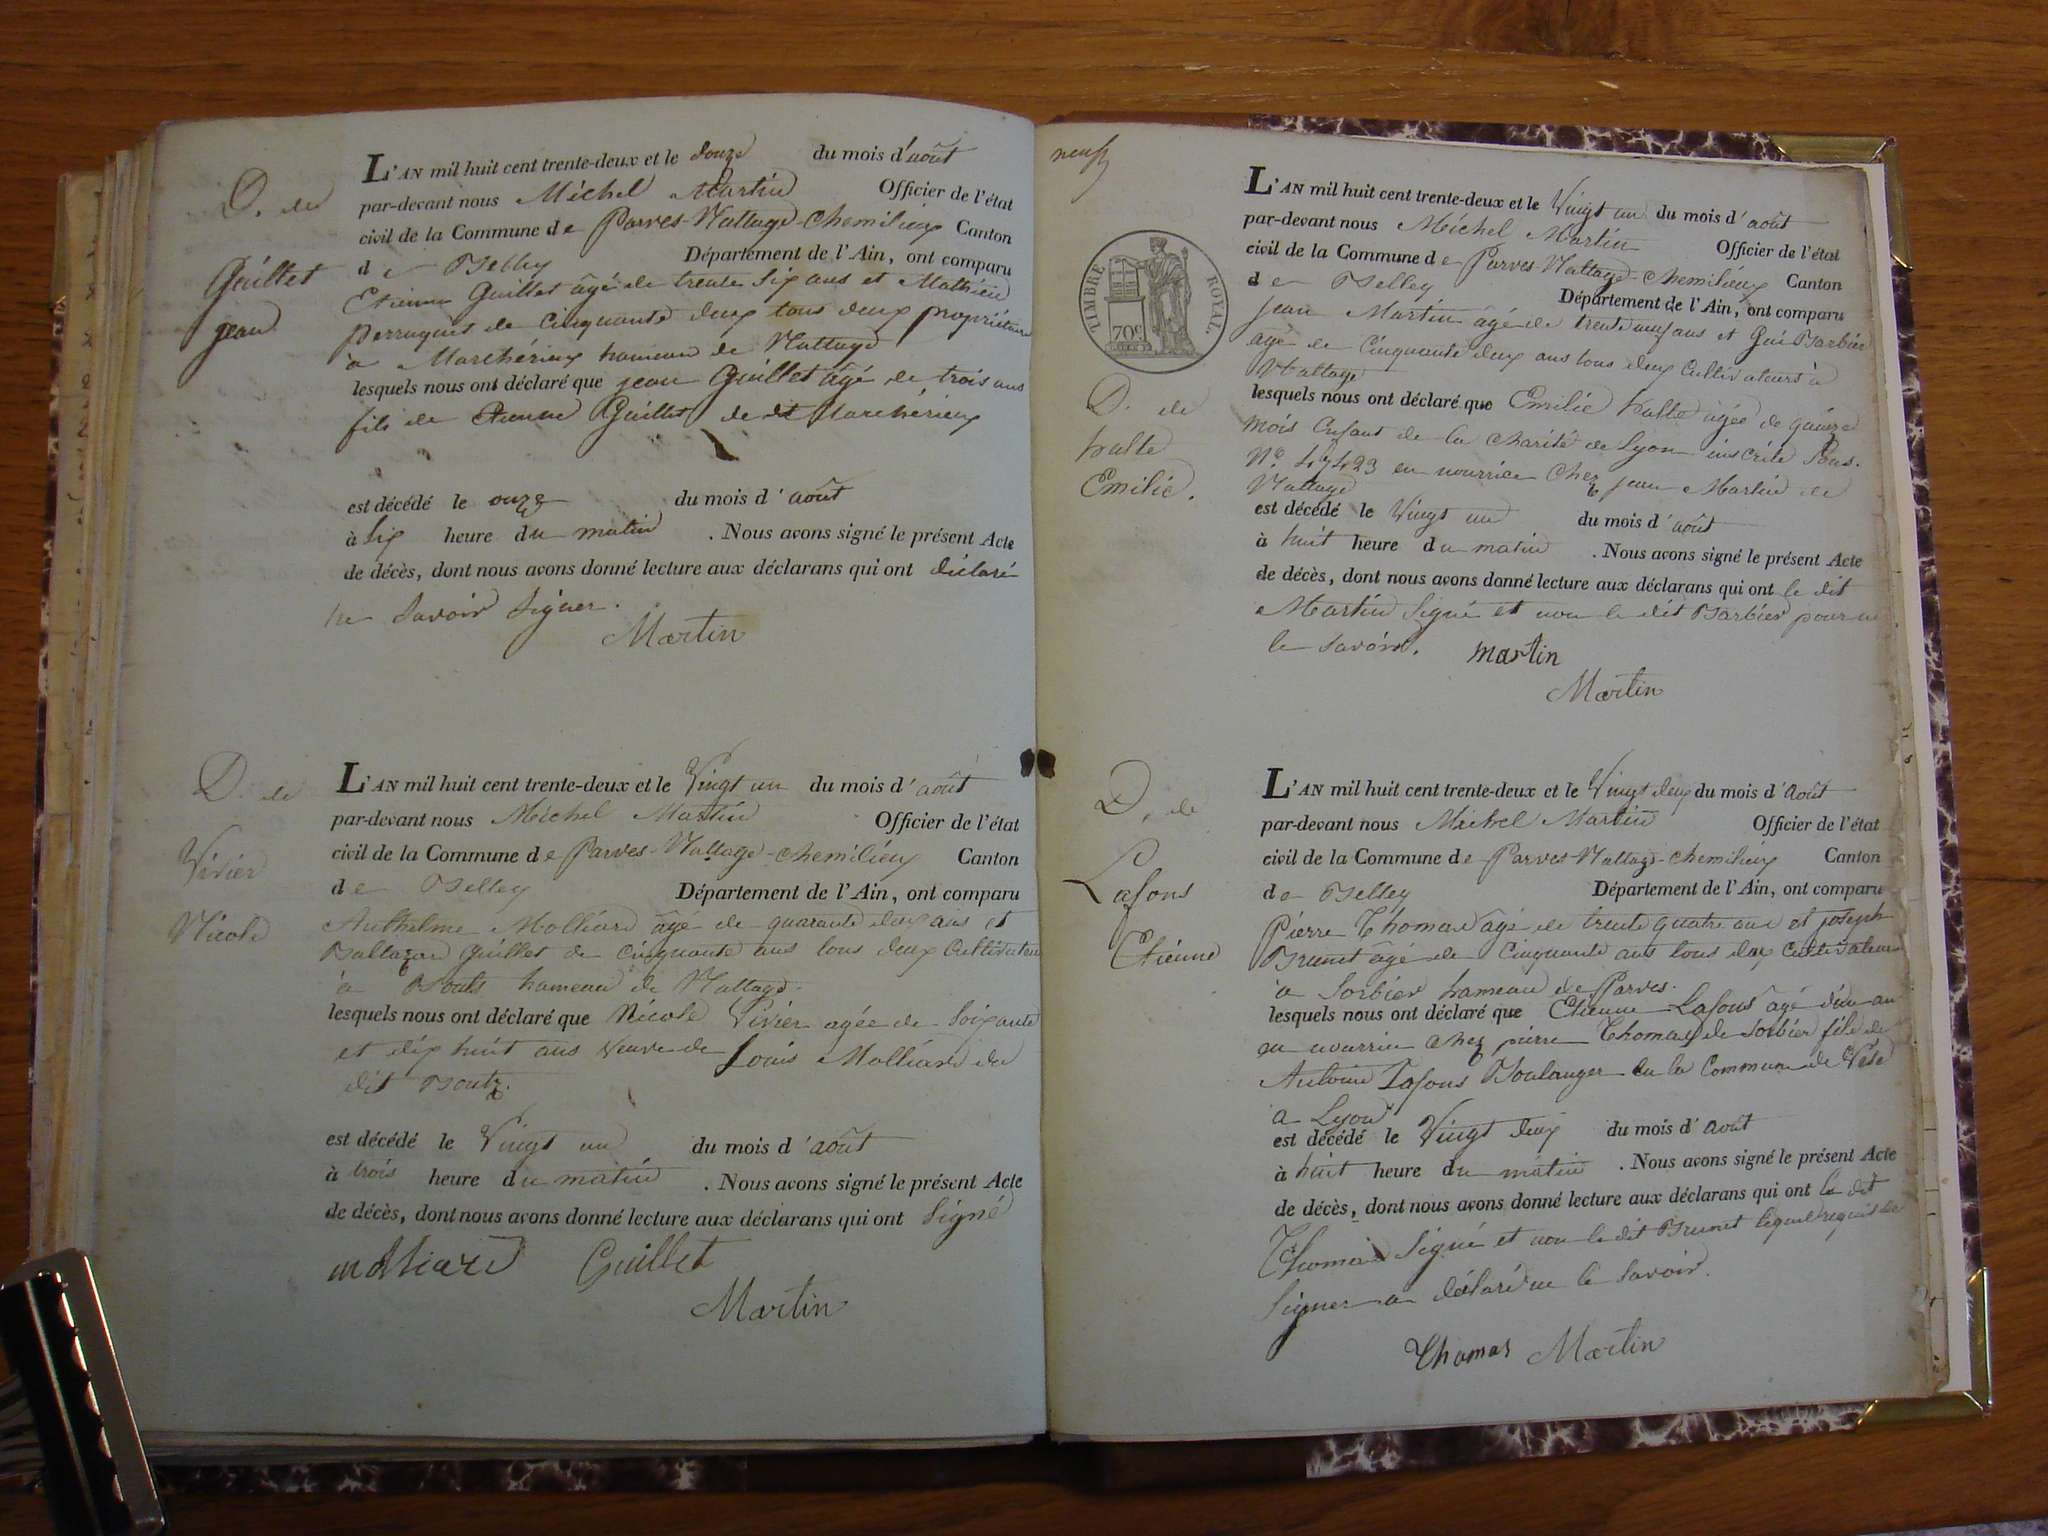 D. de
Guillet
jean
L'AN mil huit cent trente-deux et le douze du mois d'août
par-devant nous Michel Martin Officier de l'état
civil de la Commune de Parves-Nattage-Chemilieux Canton
de Belley Département de l'Ain, ont comparu
Etienne Guillet âgé de trente six ans et Mathieu
Perruquet de Cinquante deux tous deux propriétaires
à Marchérieux hameau de Nattage
lesquels nous ont déclaré que jean Guillet âgé de trois ans
fils de Etienne Guillet de dt Marchérieux
est décédé le onze du mois d'août
à Six heure du matin . Nous avons signé le présent Acte
de décès, dont nous avons donné lecture aux déclarans qui ont déclaré
ne Savoir Signer.
Martin
D. de
Vivier
Nicole
L'AN mil huit cent trente-deux et le Vingt un du mois d'août
par-devant nous Michel Martin Officier de l'état
civil de la Commune de Parves-Nattage-Chemilieux Canton
de Belley Département de l'Ain, ont comparu
Anthelme Molliard âgé de quarante deux ans et
Baltazar Guillet de Cinquante ans tous deux Cultivateurs
à hameau de Nattage.
lesquels nous ont déclaré que Nicole Vivier agée de Soixante
et dix huit ans veuve de Louis Molliard du
dit
est décédé le Vingt un du mois d'août
à trois heure du matin . Nous avons signé le présent Acte
de décès, dont nous avons donné lecture aux déclarans qui ont Signé
molliard Guillet
Martin
neuf
TIMBRE ROYAL.
70c
D. de
halte
Emilie.
L'AN mil huit cent trente-deux et le Vingt un du mois d'août
par-devant nous Michel Martin Officier de l'état
civil de la Commune de Parves-Nattage-Chemilieux Canton
de Belley Département de l'Ain, ont comparu
Jean Martin âgé de trente neuf ans et Gui Barbier
âgé de Cinquante deux ans tous deux Cultivateurs à
Nattage
lesquels nous ont déclaré que Emilie halte âgée de quinze
mois Enfant de la Charité de Lyon inscrite Sous.
N° 47423 en nourrice Chez jean Martin de
Nattage
est décédé le Vingt un du mois d'août
à huit heure du matin . Nous avons signé le présent Acte
de décès, dont nous avons donné lecture aux déclarans qui ont le dit
Martin Signé et non le dit Barbier pour ne
le savoir. martin
Martin
D. de
Lafons
Etienne
L'AN mil huit cent trente-deux et le Vingt deux du mois d'août
par-devant nous Michel Martin Officier de l'état
civil de la Commune de Parves-Nattage-Chemilieux Canton
de Belley Département de l'Ain, ont comparu
Pierre Thomas âgé de trente quatre ans et joseph
Brunet âgé de Cinquante ans tous deux Cultivateurs
à Sorbier hameau de Parves.
lesquels nous ont déclaré que Etienne Lafons âgé d'un an
en nourrice chez pierre Thomas de Sorbier fils de
Antoine Lafons Boulanger de la Commune de Vèse
a Lyon
est décédé le Vingt deux du mois d'août
à huit heure du matin . Nous avons signé le présent Acte
de décès, dont nous avons donné lecture aux déclarans qui ont le dit
Thomas Signé et non le dit Brunet lequel requis de
Signer a déclaré ne le Savoir.
Thomas Martin